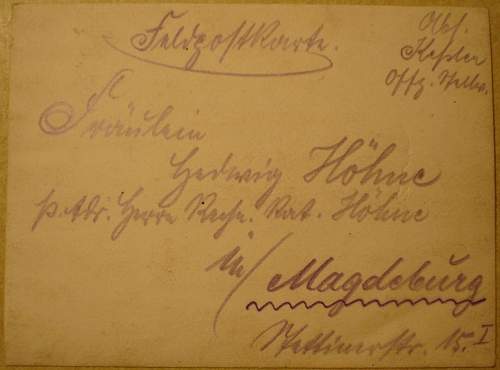 Feldpostkarte.
Abs.
Keßler
Offz. Stellv.
Fräulein
Hedwig Höhne
p. Adr. Herrn Rechn. Rat. Höhne
in/ Magdeburg
Stettinerstr. 15. I